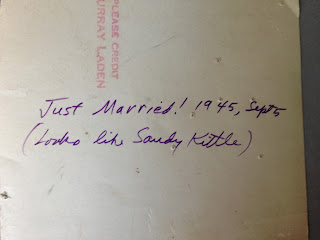 PLEASE CREDIT
MURRAY LADEN
Just Married! 1945, Sept 5
(Looks like Sandy Kittle)